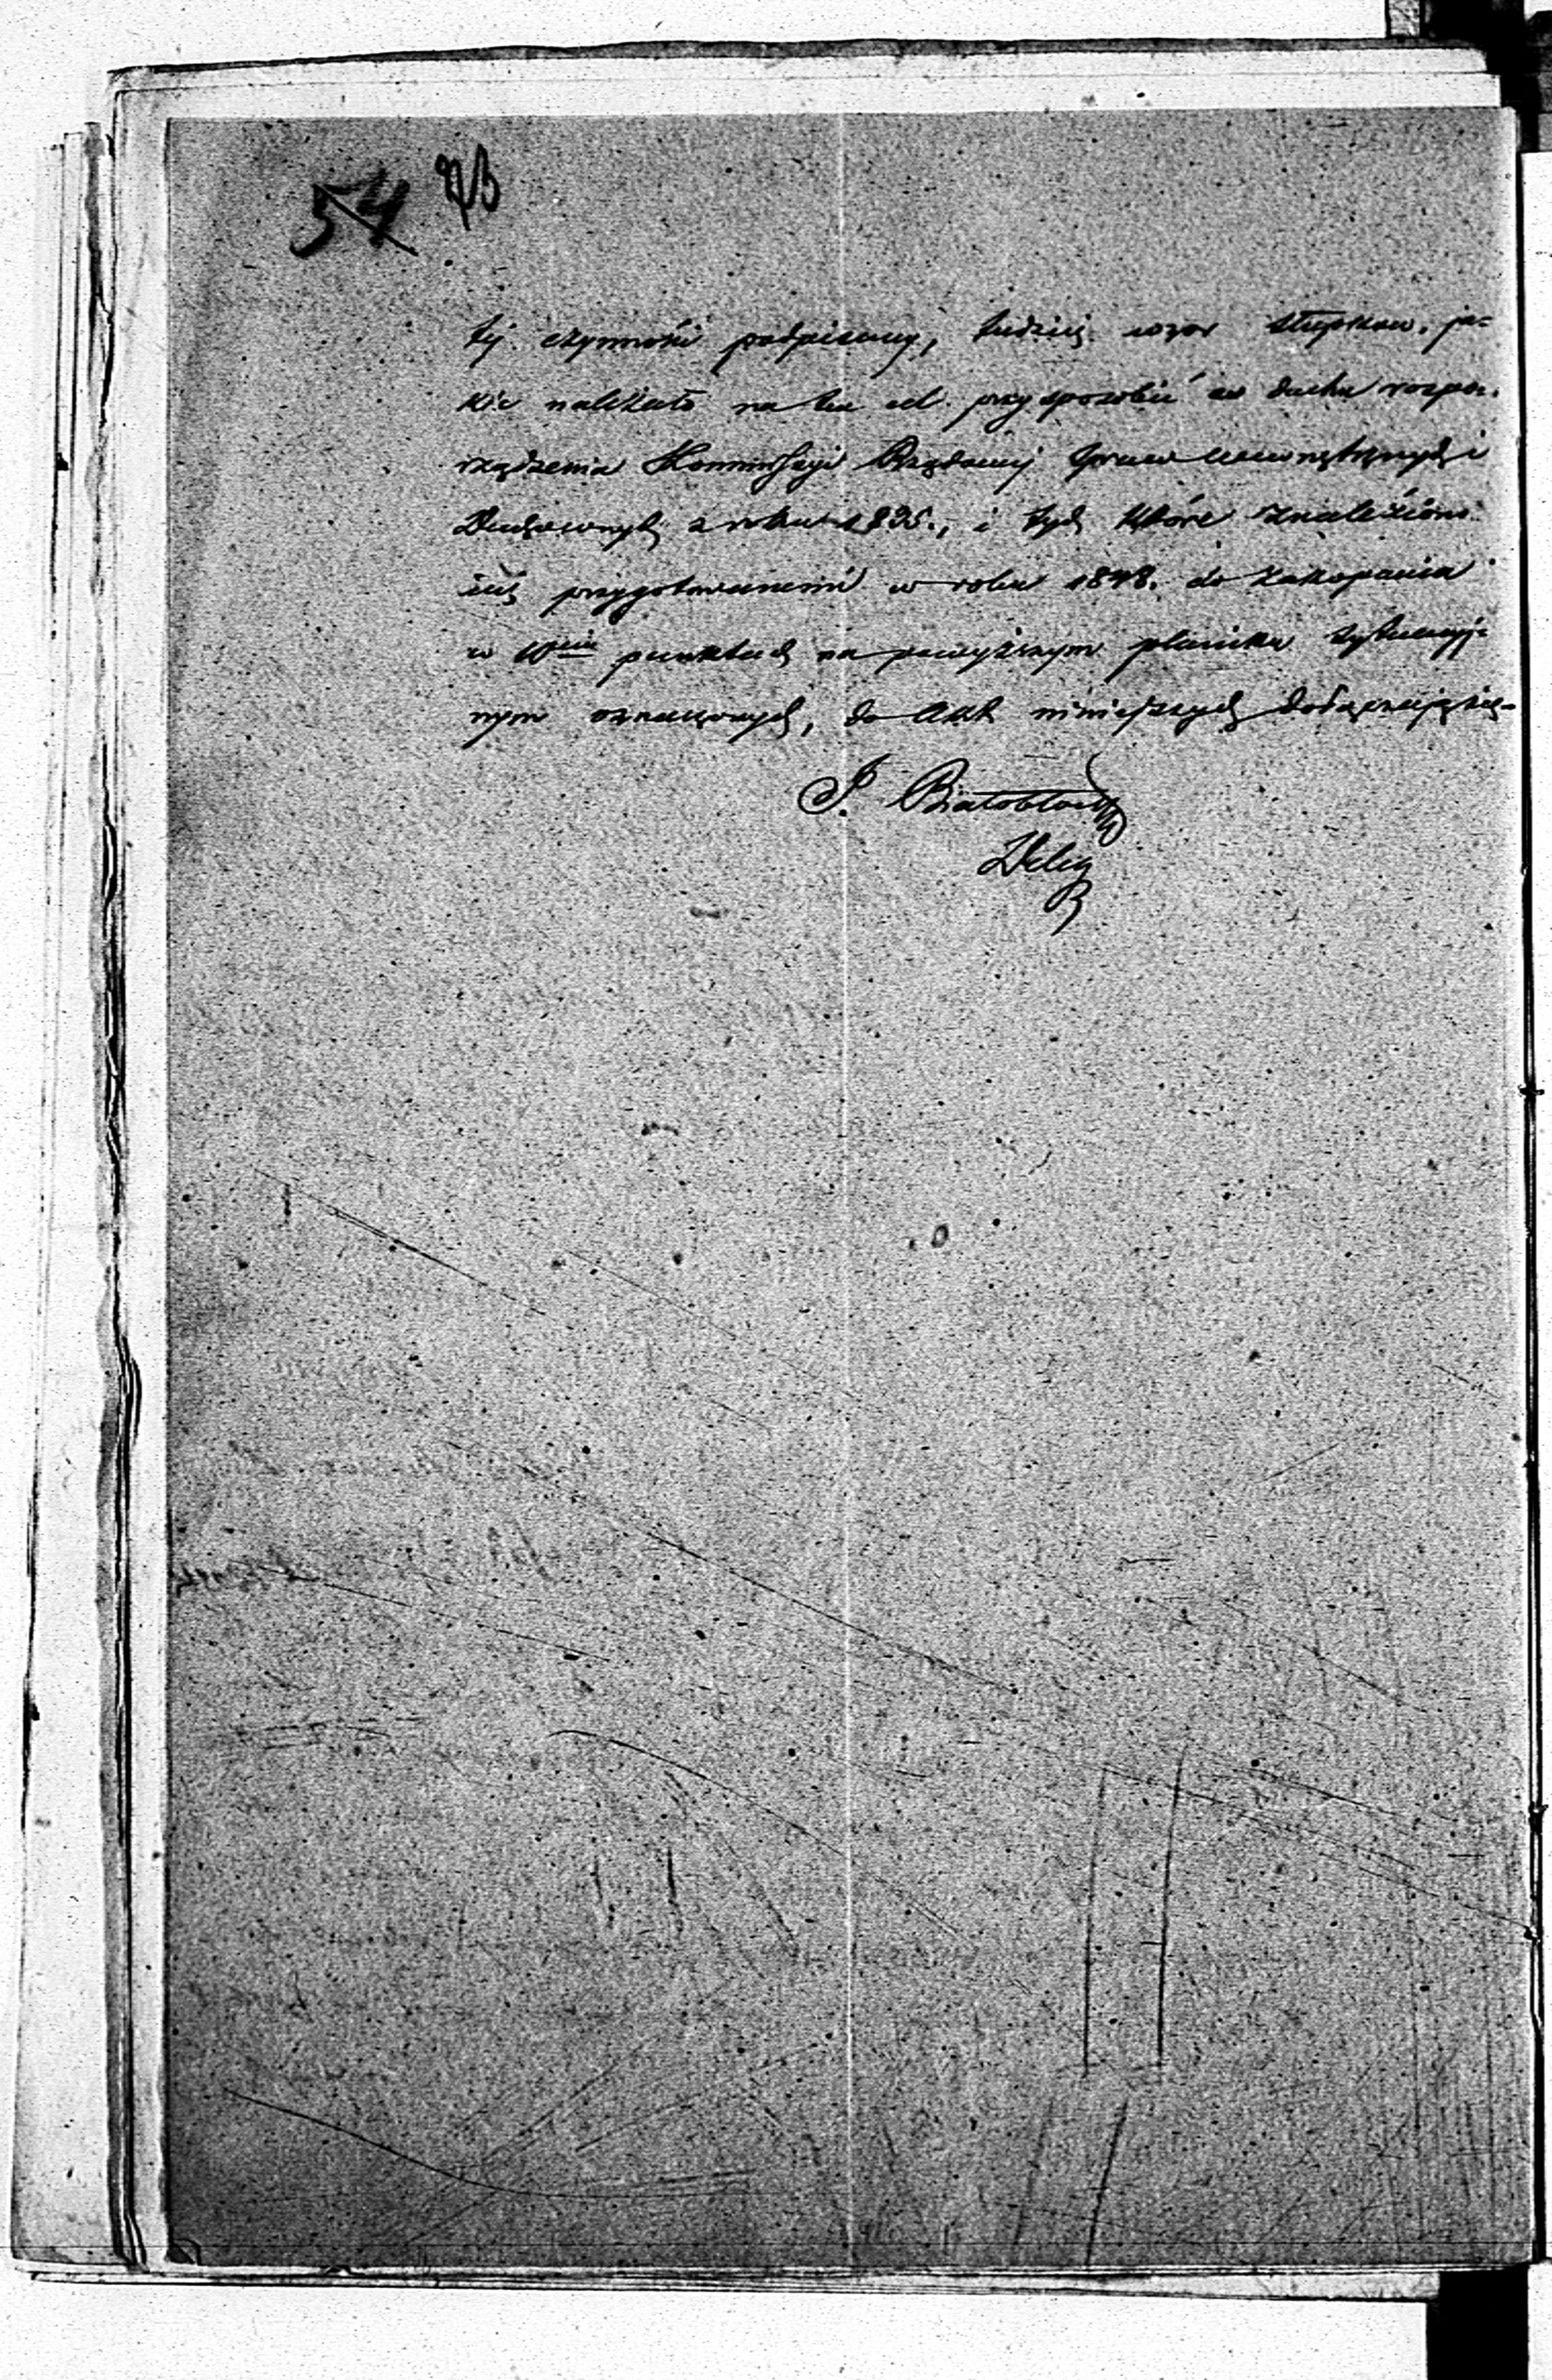 54 73
téj czynności podpisany, tudzież wzór słupków, ja=
kie należało na ten cel przysposobić w duchu rozpo=
rządzenia Kommissyi Rządowéj Spraw Wewnętrznych i
Duchownych z roku 1835., i tych które znaleziono
już przygotowanemi w roku 1848. do zakopania
w punktach na powyższym planiku sytuacyj=
nym oznaczonych, do Akt niniejszych
J. Białobłocki
Deleg